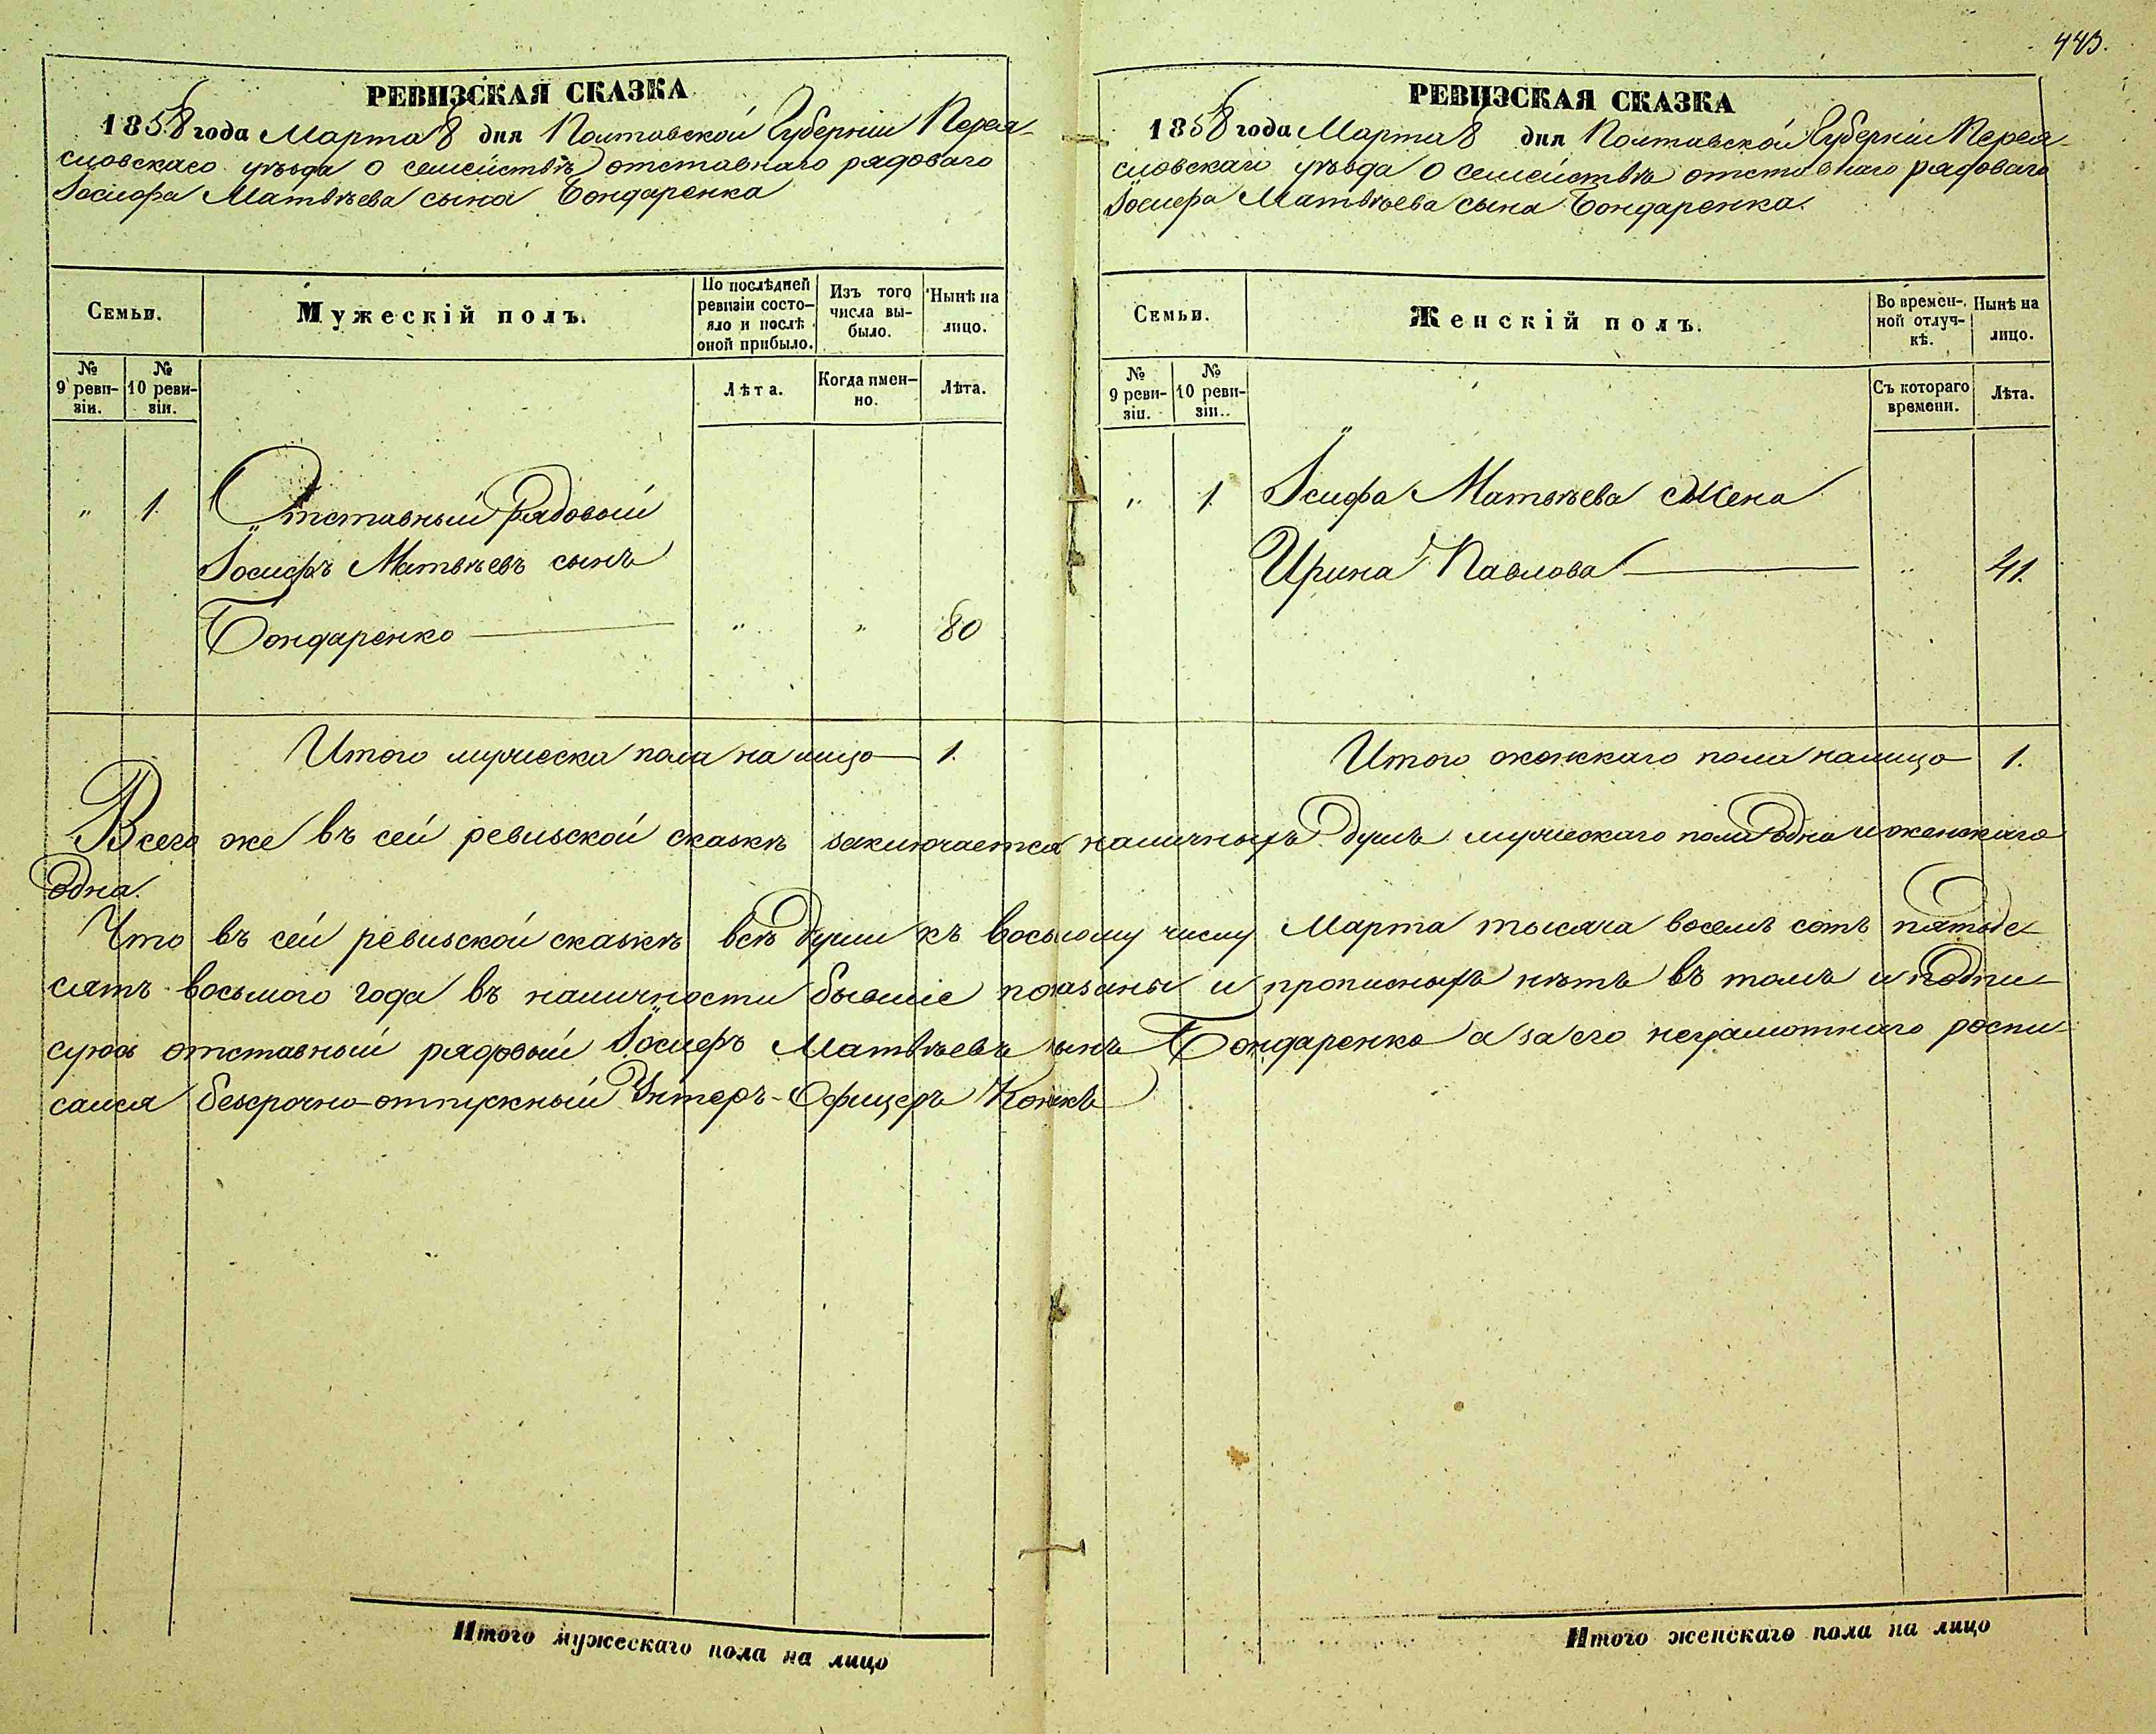 443.
РЕВИЗСКАЯ СКАЗКА
1858 года Марта 8 дня Полтавской Губерніи Перея-
словскаго уѣзда о семействѣ отставнаго рядоваго
Іосифа Матвѣева сына Бондаренка
Семьи.
Мужескій полъ.
По послѣдней ревизіи состо-яло и послѣ оной прибыло.
Изъ того числа вы-было.
Нынѣ на лицо.
№ 9 реви-зіи.
№ 10 реви-зіи.
Лѣта.
Когда имен-но.
Лѣта.
„ 1. Отставный рядовый
Іосифъ Матвѣевъ сынъ
Бондаренко — „ „ 80
Итого мужеска пола на лицо — 1.
РЕВИЗСКАЯ СКАЗКА
1858 года Марта 8 дня Полтавской Губерніи Перея-
словскаго уѣзда о семействѣ отставнаго рядоваго
Іосифа Матвѣева сына Бондаренка.
Семьи.
Женскій полъ.
Во времен-ной отлуч-кѣ.
Нынѣ на лицо.
№ 9 реви-зіи.
№ 10 реви-зіи.
Съ котораго времени.
Лѣта.
„ 1. Іосифа Матвѣева жена
Ирина Павлова — „ 41.
Итого женскаго пола на лицо 1.
Всего же въ сей ревизской сказкѣ заключается наличныхъ душъ мужескаго пола одна и женскаго
одна.
Что въ сей ревизской сказкѣ всѣ души къ восьмому числу Марта тысяча восемь сотъ пятьде-
сятъ восьмого года въ наличности бывшіе показаны и прописныхъ нѣтъ въ томъ и подпи-
суюсь отставный рядовый Іосифъ Матвѣевъ сынъ Бондаренко а за его неграмотнаго роспи-
сался безсрочно-отпускный Унтеръ-Офицеръ
Итого мужескаго пола на лицо
Итого женскаго пола на лицо